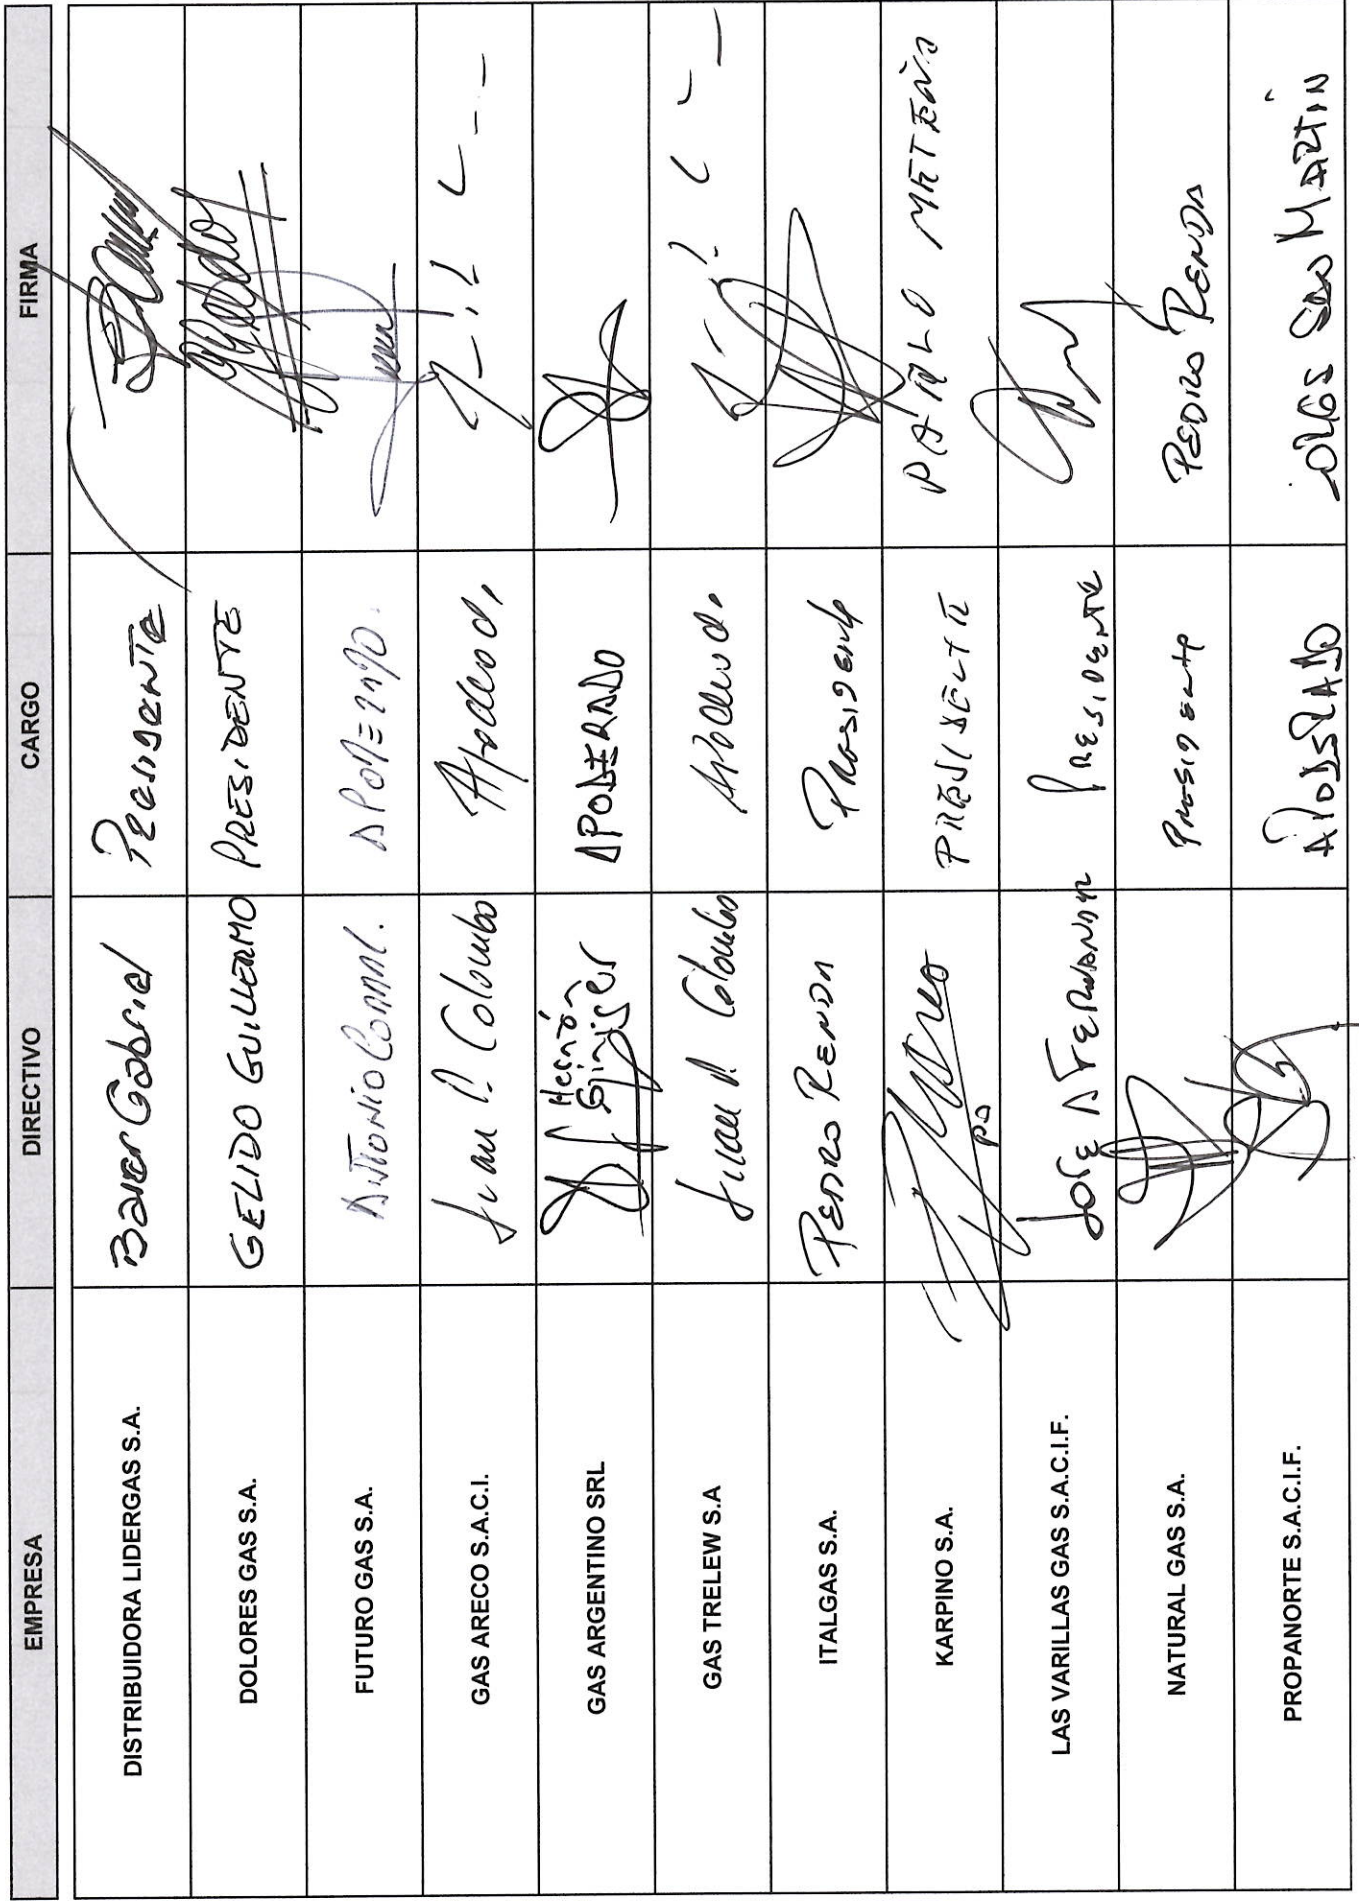 EMPRESA DIRECTIVO CARGO FIRMA
DISTRIBUIDORA LIDERGAS S.A. Baier Gabriel Presidente
DOLORES GAS S.A. GELIDO GUILLERMO PRESIDENTE
FUTURO GAS S.A. ANTONIO APODERADO.
GAS ARECO S.A.C.I. Juan P. Colombo Apoderado
GAS ARGENTINO SRL Hernán APODERADO
GAS TRELEW S.A Juan P. Colombo Apoderado
ITALGAS S.A. PEDRO RENDA PRESIDENTE
KARPINO S.A. PRESIDENTE PABLO
LAS VARILLAS GAS S.A.C.I.F. JOSE A FERNANDEZ PRESIDENTE
NATURAL GAS S.A. PRESIDENTE PEDRO RENDA
PROPANORTE S.A.C.I.F. APODERADO JORGE SAN MARTIN